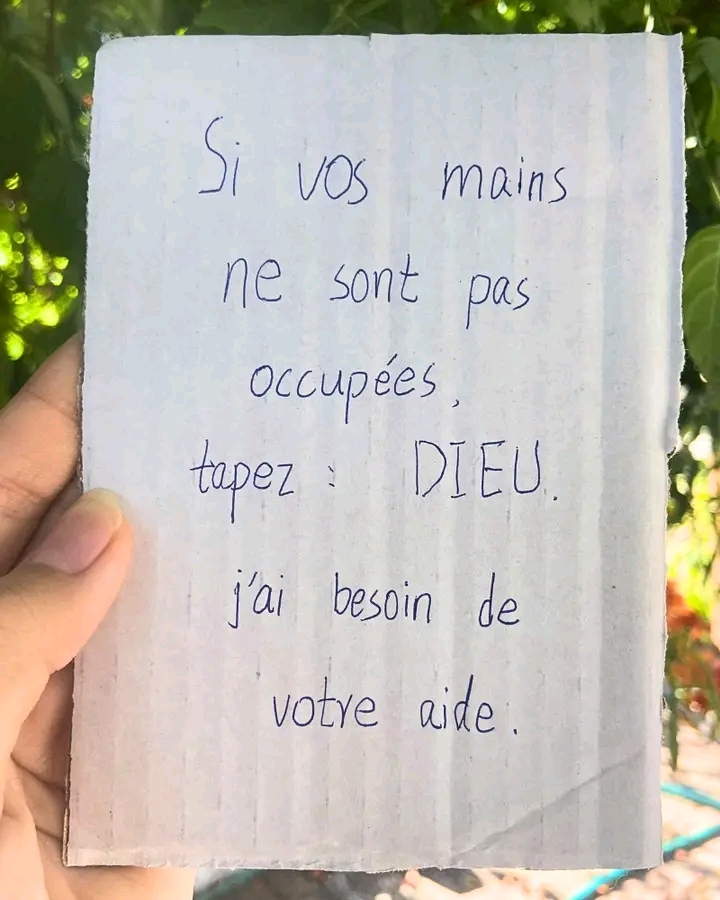 Si vos mains
ne sont pas
occupées,
tapez : DIEU.
j'ai besoin de
votre aide.